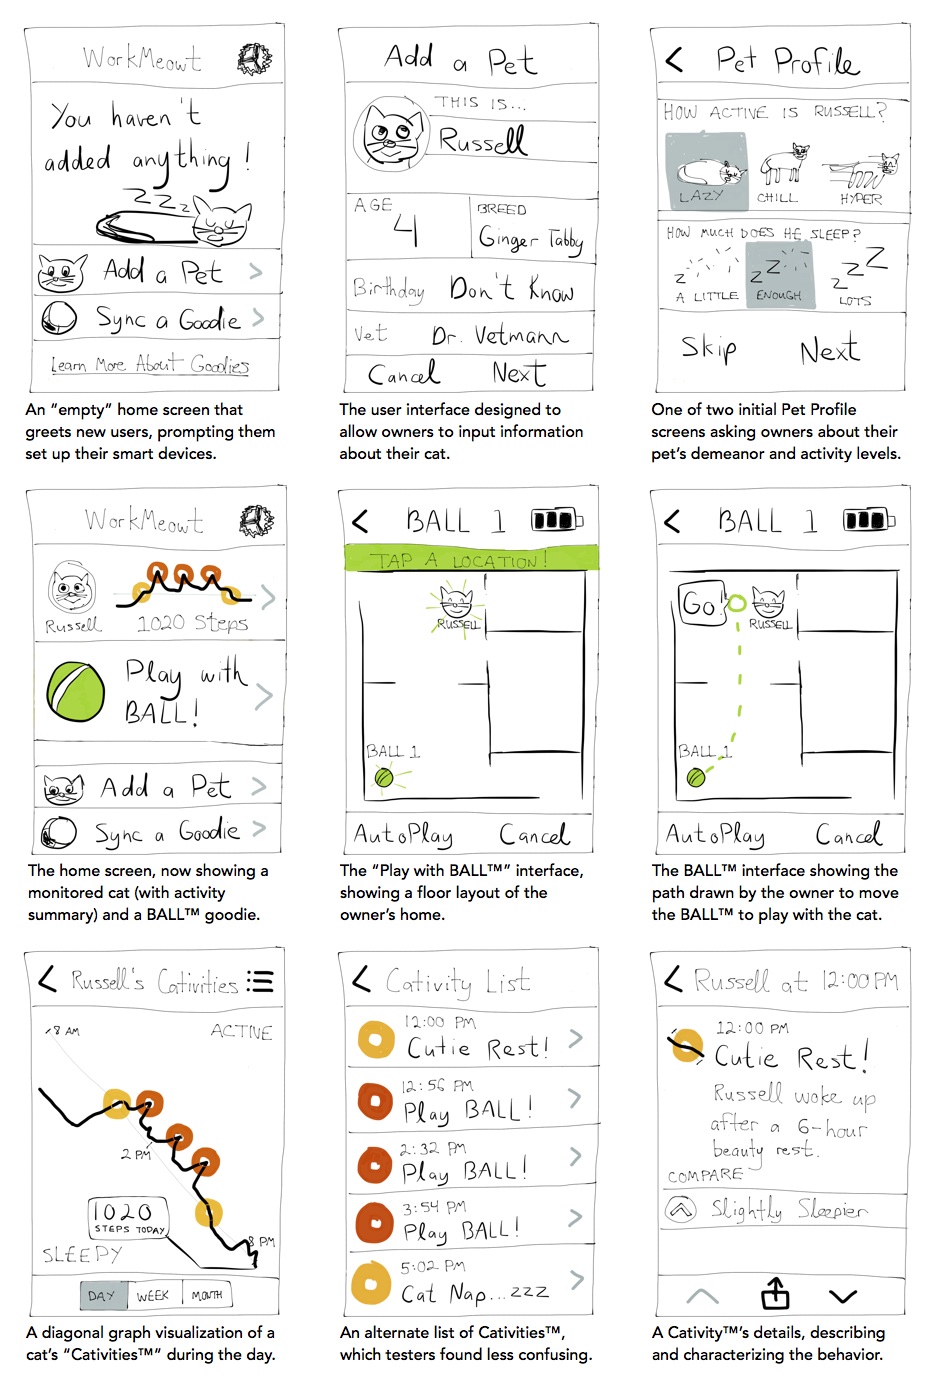 WorkMeowt
You haven't
added anything!
zzz
Add a Pet
Sync a Goodie
Learn More About Goodies
An "empty" home screen that
greets new users, prompting them
set up their smart devices.
Add a Pet
THIS IS...
Russell
AGE
4
BREED
Ginger Tabby
Birthday Don't Know
Vet Dr. Vetmann
Cancel Next
The user interface designed to
allow owners to input information
about their cat.
< Pet Profile
HOW ACTIVE IS RUSSELL?
LAZY CHILL HYPER
HOW MUCH DOES HE SLEEP?
z zz zzZ
A LITTLE ENOUGH LOTS
Skip Next
One of two initial Pet Profile
screens asking owners about their
pet's demeanor and activity levels.
WorkMeowt
Russell
1020 Steps
Play with
BALL!
Add a Pet
Sync a Goodie
The home screen, now showing a
monitored cat (with activity
summary) and a BALL™ goodie.
< BALL 1
TAP A LOCATION!
RUSSELL
BALL 1
AutoPlay Cancel
The "Play with BALL™" interface,
showing a floor layout of the
owner's home.
< BALL 1
Go!
RUSSELL
BALL 1
AutoPlay Cancel
The BALL™ interface showing the
path drawn by the owner to move
the BALL™ to play with the cat.
< Russell's Cativities
8 AM
ACTIVE
2 PM
1020
STEPS TODAY
8 PM
SLEEPY
DAY WEEK MONTH
A diagonal graph visualization of a
cat's "Cativities™" during the day.
< Cativity List
12:00 PM
Cutie Rest!
12:56 PM
Play BALL!
2:32 PM
Play BALL!
3:54 PM
Play BALL!
5:02 PM
Cat Nap...zzz
An alternate list of Cativities™,
which testers found less confusing.
< Russell at 12:00 PM
12:00 PM
Cutie Rest!
Russell woke up
after a 6-hour
beauty rest.
COMPARE
Slightly Sleepier
A Cativity™'s details, describing
and characterizing the behavior.